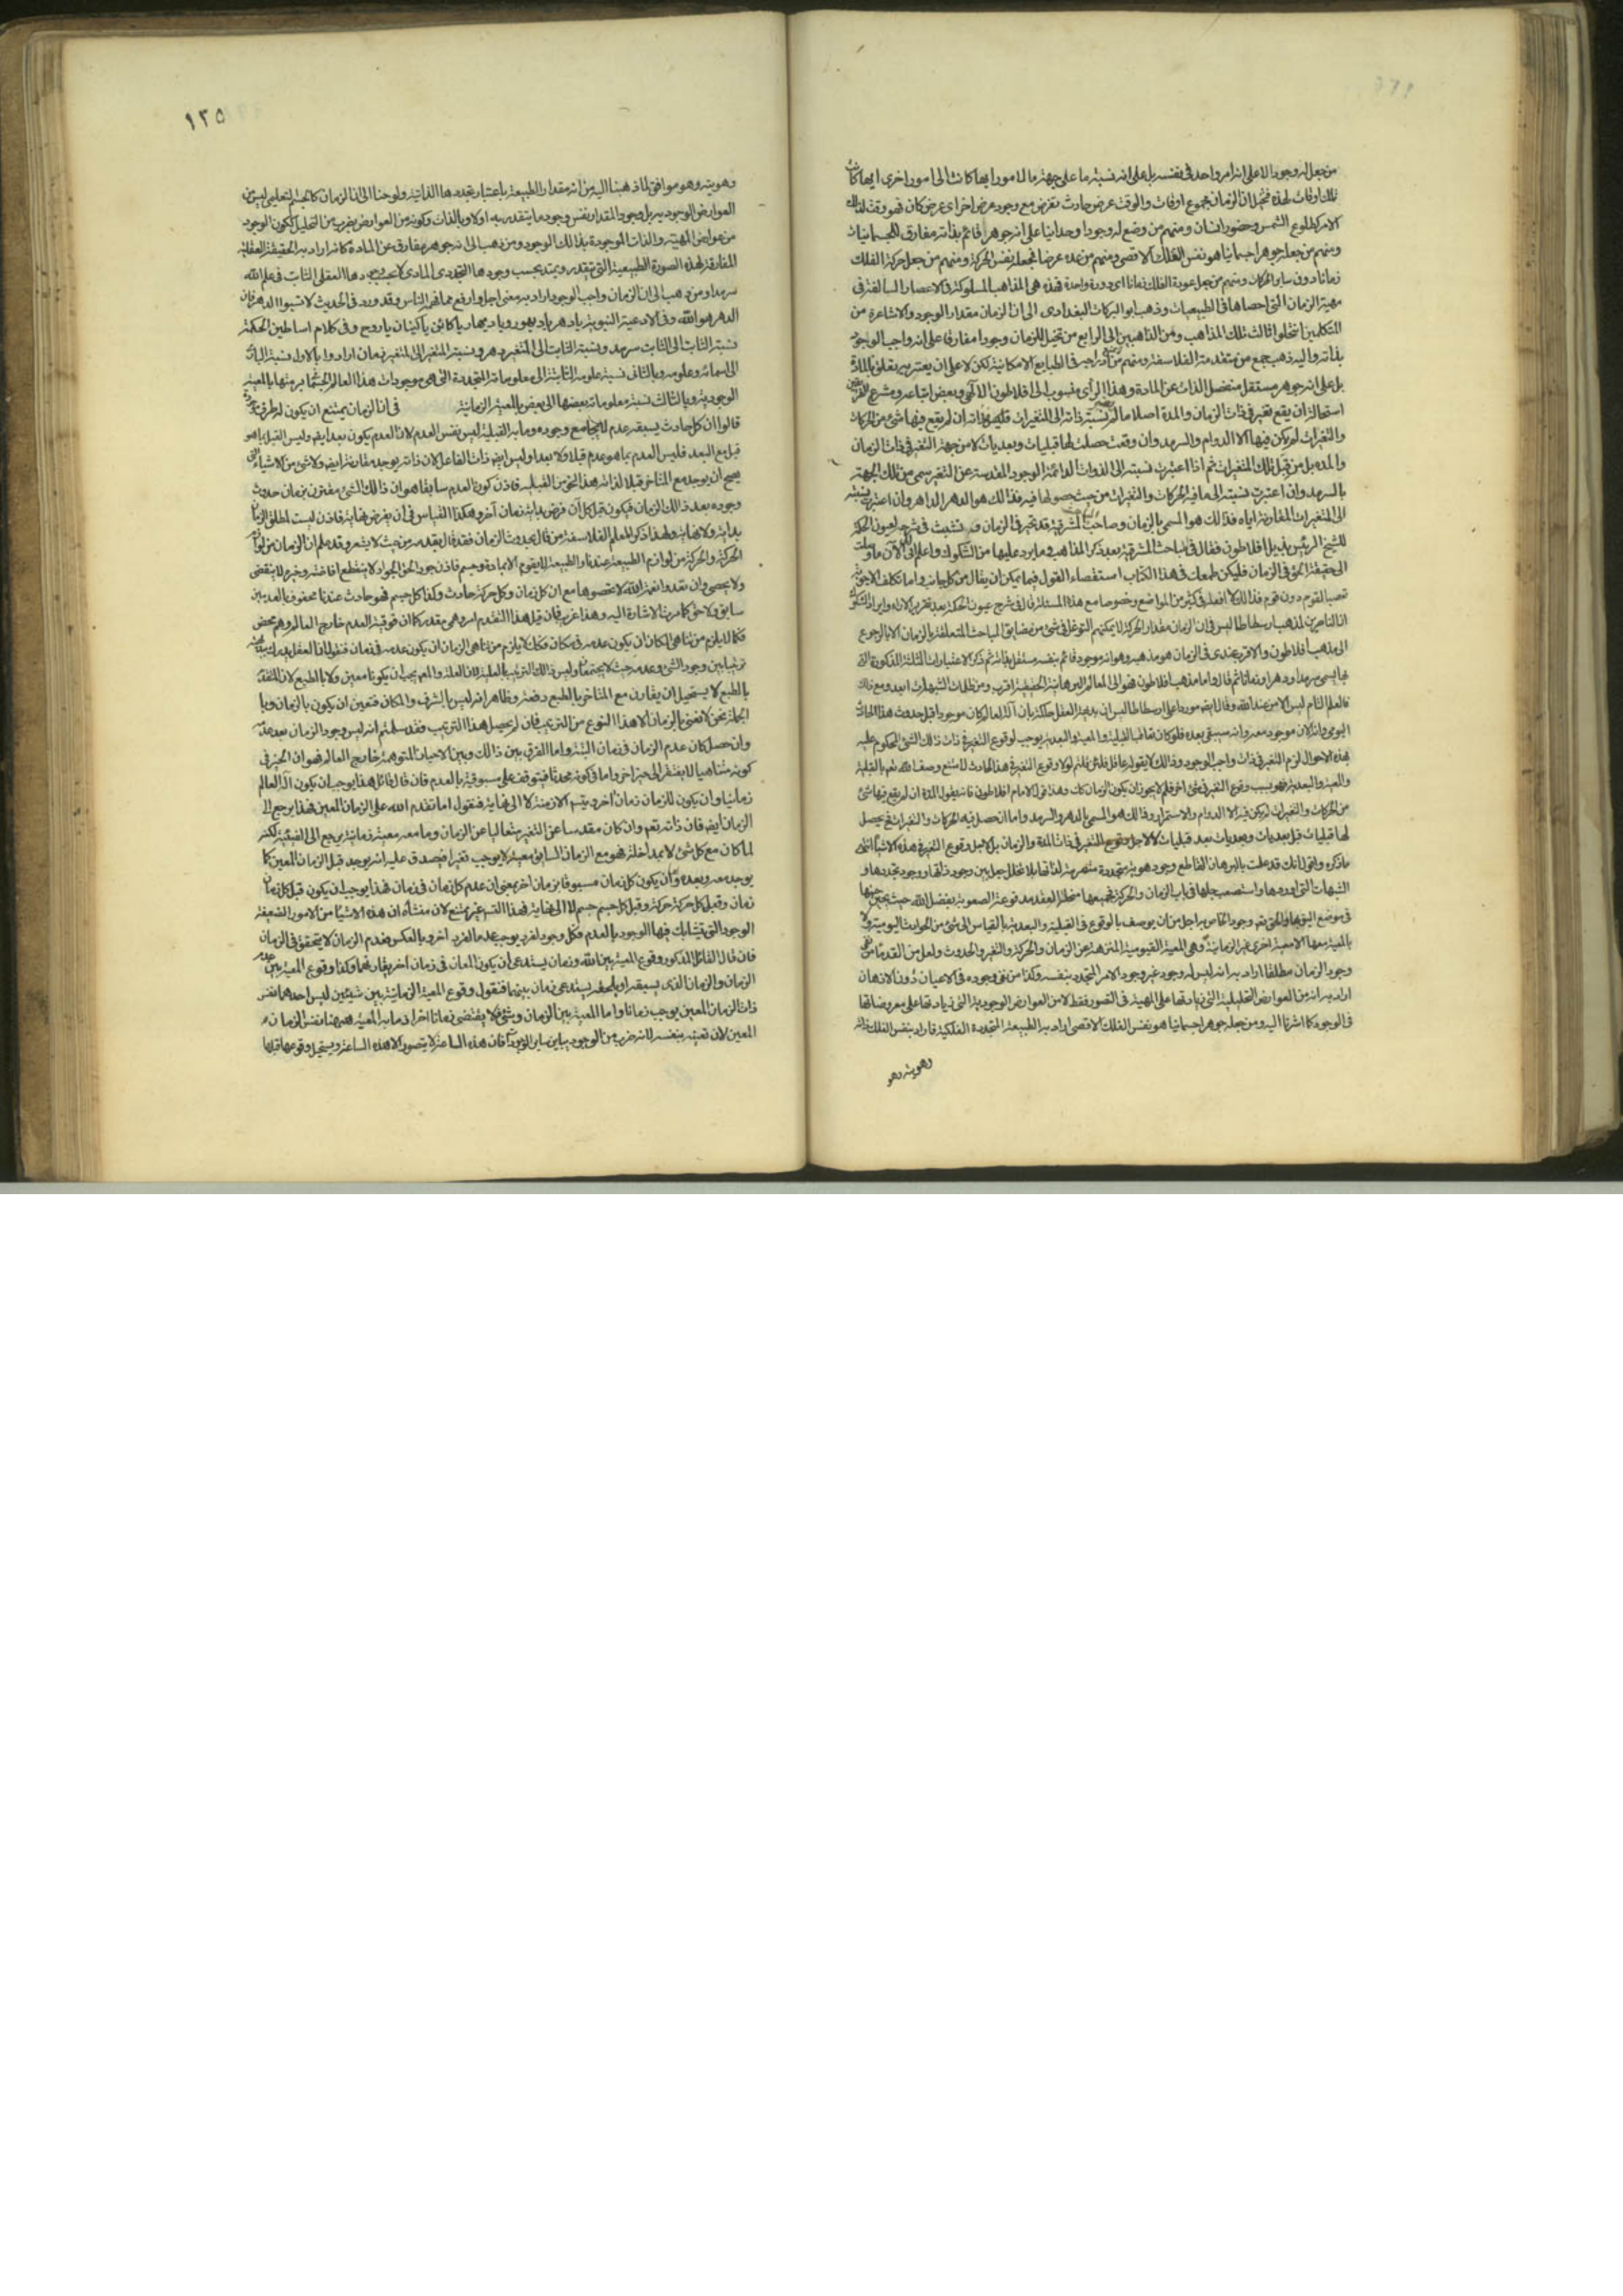 من جعل له وجودا لا على انه امر واحد في نفسه بل على انه نسبة ما على جهة ما لامور ايها كانت الى امور اخرى ايها كانت
تلك اوقات لهذه فتخيل ان الزمان مجموع اوقات والوقت عرض حادث يعرض مع وجود عرض اخر اى عرض كان فهو وقت لذلك
الاخر كطلوع الشمس وحضور انسان ومنهم من وضع له وجودا وحدانيا على انه جوهر قائم بذاته مفارق للجسمانيات
ومنهم من جعله جوهرا جسمانيا هو نفس الفلك الاقصى ومنهم من عده عرضا فجعله نفس الحركة ومنهم من جعل حركة الفلك
زمانا دون ساير الحركات ومنهم من جعل عودة الفلك زمانا اى دورة واحدة فهذه هى المذاهب المسلوكة فى الاعصار السالفة فى
مهية الزمان التى احصاها فى الطبيعيات وذهب ابو البركات البغدادى الى ان الزمان مقدار الوجود والاشاعرة من
المتكلمين انتحلوا ثالث تلك المذاهب ومن الذاهبين الى الرابع من تخيل للزمان وجودا مفارقا على انه واجب الوجود
بذاته واليه ذهب جمع من متقدمة الفلاسفة ومنهم من وضع ادراجه فى الطبايع الامكانية لكن لا على ان يعتريه تعلق بالمادة
بل على انه جوهر مستقل منفصل الذات عن المادة وهذا الرأى منسوب الى افلاطون الالهى وبعض اشياعه ومشرع الفريقين
استحالة ان يقع تغير فى ذات الزمان والمدة اصلا ما لم يعتبر نسبة ذاته الى المتغيرات فليس بذاته ان لم يقع فيها شئ من الحركات
والتغيرات لم يكن فيها الا الدوام والسرمد وان وقعت حصلت لها قبليات وبعديات لا من جهة التغير فى ذات الزمان
والمدة بل من قبل تلك المتغيرات ثم اذا اعتبرت نسبته الى الذوات الدائمة الوجود المقدسة عن التغير سمى من تلك الجهة
بالسرمد وان اعتبرت نسبته الى ما فيه الحركات والتغيرات من حيث حصولها فيه فذالك هو الدهر الداهر وان اعتبرت نسبته
الى المتغيرات المقارنة اياه فذالك هو المسمى بالزمان وصاحب المباحث المشرقية قد تحير فى الزمان وتشبث فى شرحه لعيون الحكمة
للشيخ الرئيس بذيل افلاطون فقال فى المباحث المشرقية بعد ذكر المذاهب وما يرد عليها من الشكوك واعلم انى الى الآن ما وصلت
الى حقيقة الحق فى الزمان فليكن طمعك فى هذا الكتاب استقصاء القول فيما يمكن ان يقال من كل جانب واما تكلف الاجوبة
تعصبا لقوم دون قوم فذالك لا افعله فى كثير من المواضع وخصوصا مع هذه المسئلة وقال فى شرح عيون الحكمة بعد تقرير الآراء وايراد الشكوك
ان الناصرين لمذهب ارسطاطاليس فى ان الزمان مقدار الحركة لا يمكنهم التوغل فى شئ من مضايق المباحث المتعلقة بالزمان الا بالرجوع
الى مذهب افلاطون والاقرب عندى فى الزمان هو مذهبه وهو انه موجود قائم بنفسه مستقل بذاته ثم ذكر الاعتبارات الثلثة المذكورة التى
بها يسمى سرمدا ودهرا وزمانا ثم قال واما مذهب افلاطون فهو الى المعالم البرهانية الحقيقية اقرب ومن ظلمات الشبهات ابعد ومع ذلك
فالعلم التام ليس الا من عند الله وقال ايضا موردا على ارسطاطاليس ان بديهة العقل حاكمة بان اله العالم كان موجودا قبل حدوث هذا الحادث
اليومى وانه الان موجود معه وانه سيبقى بعده فلو كان تعاقب القبلية والمعية والبعدية يوجب لوقوع التغير فى ذات ذلك الشئ المحكوم عليه
بهذه الاحوال لزم التغير فى ذات واجب الوجود وذالك لا يقوله عاقل فلئن قلتم لولا وقوع التغير فى هذا الحادث لامتنع وصف الله تعالى بالقبلية
والمعية والبعدية فهو بسبب وقوع التغير فى شئ اخر فلم لا يجوز ان يكون الزمان كك وهذا قول الامام افلاطون فانه يقول المدة ان لم يقع فيها شئ
من الحركات والتغيرات لم يكن فيه الا الدوام والاستمرار وذالك هو المسمى بالدهر والسرمد واما ان حصل فيه الحركات والتغيرات فح يحصل
لها قبليات قبل بعديات وبعديات بعد قبليات لا لاجل وقوع التغير فى ذات المدة والزمان بل لاجل وقوع التغير فى هذه الاشياء انتهى
ما ذكره واقول انك قد علمت بالبرهان القاطع وجود هوية متجددة متصرمة لذاتها بلا تخلل جعل بين وجود ذاتها ووجود تجددها و
الشبهات التى اوردها واستصعب حلها فى باب الزمان والحركة فجميعها منحلة العقد مدفوعة الصعوبة بفضل الله حيث يحين حينها
فى موضع اليق بها والحق تعالى وجود الخاص به اجل من ان يوصف بالوقوع فى القبلية والبعدية بالقياس الى شئ من الحوادث اليومية ولا
بالمعية معها الا معية اخرى غير الزمانية وهى المعية القيومية المنزهة عن الزمان والحركة والتغير والحدوث ولعل من القدماء من نفى
وجود الزمان مطلقا اراد به انه ليس له وجود غير وجود الامر المتجدد بنفسه وكذا من نفى وجوده فى الاعيان دون الاذهان
اراد به انه من العوارض التحليلية التى زيادتها على المهية فى التصور فقط لا من العوارض الوجودية التى زيادتها على معروضاتها
فى الوجود كما اشرنا اليه ومن جعله جوهرا جسمانيا هو نفس الفلك الاقصى اراد به الطبيعة المتجددة الفلكية فاراد بنفس الفلك ذاته
وهويته وهو
١٢٥
وهويته وهو موافق لما ذهبنا اليه من انه مقدار الطبيعة باعتبار تجددها الذاتية ولوحنا الى ان الزمان كالجسم التعليمى ليس من
العوارض الوجودية بل وجود المقدار نفس وجود ما يتقدر به اولا وبالذات وكونه من العوارض بضرب من التحليل ككون الوجود
من عوارض المهية والذات الموجودة بذالك الوجود ومن ذهب الى انه جوهر مفارق عن المادة كانه اراد به الحقيقة العقلية
المفارقة لهذه الصورة الطبيعية التى تتقدر ويمتد بحسب وجودها التجددى المادى لا بحسب وجودها العقلى الثابت فى علم الله
سرمدا ومن ذهب الى ان الزمان واجب الوجود اراد به معنى اجل وارفع مما فهمه الناس وقد ورد فى الحديث لا تسبوا الدهر فان
الدهر هو الله وفى الادعية النبوية يا دهر يا ديهور يا ديهار يا كان يا كينان يا روح وفى كلام اساطين الحكمة
نسبة الثابت الى الثابت سرمد ونسبة الثابت الى المتغير دهر ونسبة المتغير الى المتغير زمان ارادوا بالاول نسبة البارى
الى اسمائه وعلومه وبالثانى نسبة علومه الثابتة الى معلوماته المتجددة التى هى موجودات هذا العالم الجسمانى برمتها بالمعية
الوجودية وبالثالث نسبة معلوماته بعضها الى بعض بالمعية الزمانية فى ان الزمان يمتنع ان يكون له طرف موجود
قالوا ان كل حادث يسبقه عدم لا يجامع وجوده وما به القبلية ليس نفس العدم لان العدم يكون بعد ايضا وليس القبل بما هو
قبل مع البعد فليس العدم بما هو عدم قبلا ولا بعدا وليس ايضا ذات الفاعل لان ذاته يوجد مقارنة ايضا ولا شئ من الاشياء التى
يصح ان يوجد مع المتاخر قبلا لذاته هذا النحو من القبلية فاذن كون العدم سابقا هو ان ذالك الشئ مقترن بزمان حدوث
وجوده بعد ذالك الزمان فيكون قبل كل آن فرض بداية زمان آخر وهكذا القياس فى آن يفرض نهاية فاذن ليست لمطلق الزمان
بداية ولا نهاية ولهذا ذكر المعلم الفلاسفة من قال بحدوث الزمان فقد قال بقدمه من حيث لا يشعر وقد علم ان الزمان من لوازم
الحركة والحركة من لوازم الطبيعة عندنا والطبيعة لا يقوم الا بمادة وجسم فاذن جود الحق الجواد لا ينقطع افاضته وخيره لا ينقضى
ولا يحصى وان تعدوا نعمة الله لا تحصوها مع ان كل زمان وكل حركة حادث وكذا كل جسم فهو حادث عندنا محفوف بالعدمين
سابق ولاحق كما مرت الاشارة اليه وهذا غريب فان قيل هذا التقدم امر وهمى مقدر كما ان فوقية العدم خارج العالم وهم محض
فكما لا يلزم من تناهى المكان ان يكون عدمه فى مكان فكك لا يلزم من تناهى الزمان ان يكون عدمه فى زمان فنقول ان العقل يدرك بديهة
ترتبا بين وجود الشئ وعدمه حيث لا يجتمعان وليس ذالك الترتيب بالعلية لان العلة والمعلول يجب ان يكونا معين ولا بالطبع لان المتقدم
بالطبع لا يستحيل ان يقارن مع المتاخر بالطبع وضعه وظاهر انه ليس بالشرف والمكان فتعين ان يكون بالزمان وبا
لجملة نحن لا نعنى بالزمان الا هذا النوع من الترتيب فان لم يحصل هذا الترتيب فقد سلمتم انه ليس وجود الزمان بعد عدمه
وان حصل كان عدم الزمان فى زمان البتة واما الفرق بين ذالك وبين الاحياز المتوهمة خارج العالم فهو ان الجسم فى
كونه متناهيا لا يفتقر الى حيز اخر واما فى كونه محدثا فيتوقف على مسبوقيته بالعدم فان قال قائل هذا يوجب ان يكون اله العالم
زمانيا وان يكون للزمان زمان آخر ويتم الازمنة لا الى نهاية فنقول اما تقدم الله على الزمان المعين فهذا يرجع الى
الزمان ايضا فان ذاته تعالى وان كان مقدسا عن التغير متعاليا عن الزمان وما معه معية زمانية يرجع الى الفيئية لكنه
لما كان مع كل شئ لا بمداخلة فهو مع الزمان السابق معية لا يوجب تغيرا فيصدق عليه انه يوجد قبل الزمان المعين كما
يوجد معه وبعده وان يكون كل زمان مسبوقا بزمان اخر بمعنى ان عدم كل زمان فى زمان فهذا يوجب ان يكون قبل كل زمان
زمان وقبل كل حركة حركة وقبل كل جسم جسم لا الى نهاية فهذا التسم غير ممتنع لان منشأه ان هذه الاشياء من الامور الضعيفة
الوجود التى تشابك فيها الوجود بالعدم فكل وجود لفرد يوجب عدما لفرد اخر وبالعكس فعدم الزمان لا يتحقق فى الزمان
فان قال القائل المذكور وقوع المعية بين الله وزمان يستدعى ان يكون المعان فى زمان اخر يقارنهما وكذا وقوع المعية بين عدم
الزمان والزمان الذى يسبقه او يلحقه يستدعى زمان بينهما فنقول وقوع المعية الزمانية بين شيئين ليس احدهما نفس
ذات الزمان المعين يوجب زمانا واما المعية بين الزمان وشئ فلا يقتضى زمانا اخر اذ ما به المعية ههنا نفس الزمان
المعين لان تعينه بنفسه لانه ضرب من الوجود يباين ساير الوجودات فان هذه الساعة لا يتصور الا هذه الساعة ويستحيل وقوعها قبلها